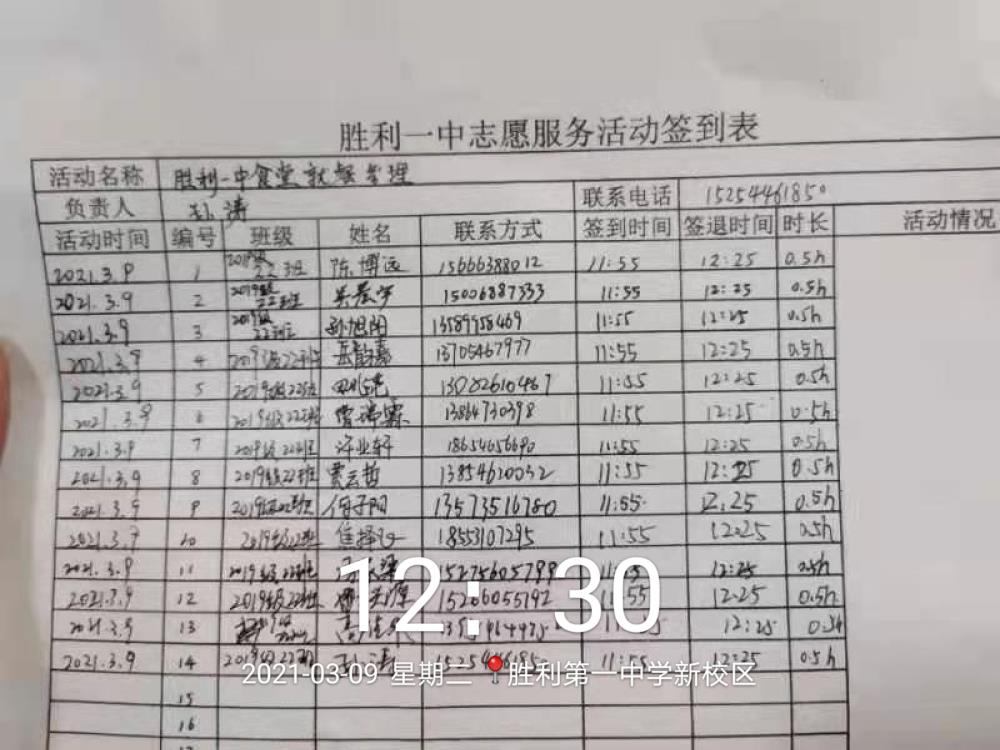 胜利一中志愿服务活动签到表
活动名称 胜利一中食堂就餐管理
负责人 孙涛 联系电话 15254461850
活动时间 编号 班级 姓名 联系方式 签到时间 签退时间 时长 活动情况
2021.3.9 1 2019级22班 陈博远 15666388012 11:55 12:25 0.5h
2021.3.9 2 2019级22班 15006887333 11:55 12:25 0.5h
2021.3.9 3 2019级22班 孙旭阳 13589958469 11:55 12:25 0.5h
2021.3.9 4 2019级22班 岳韵嘉 13705467977 11:55 12:25 0.5h
2021.3.9 5 2019级22班 13082610467 11:55 12:25 0.5h
2021.3.9 6 2019级22班 13864730398 11:55 12:25 0.5h
2021.3.9 7 2019级22班 许业轩 18654656690 11:55 12:25 0.5h
2021.3.9 8 2019级22班 贾云哲 13854620032 11:55 12:25 0.5h
2021.3.9 9 2019级22班 任子阳 13573516780 11:55 12.25 0.5h
2021.3.9 10 2019级22班 18553107295 11:55 12:25 0.5h
2021.3.9 11 2019级22班 15275605799 12:25 0.5h
2021.3.9 12 2019级22班 15206055192 11:55 12:25 0.5h
2021.3.9 13 12:25 0.5h
2021.3.9 14 2019级22班 孙涛 11:55 12:25 0.5h
15
16
12:30
2021-03-09 星期二 胜利第一中学新校区